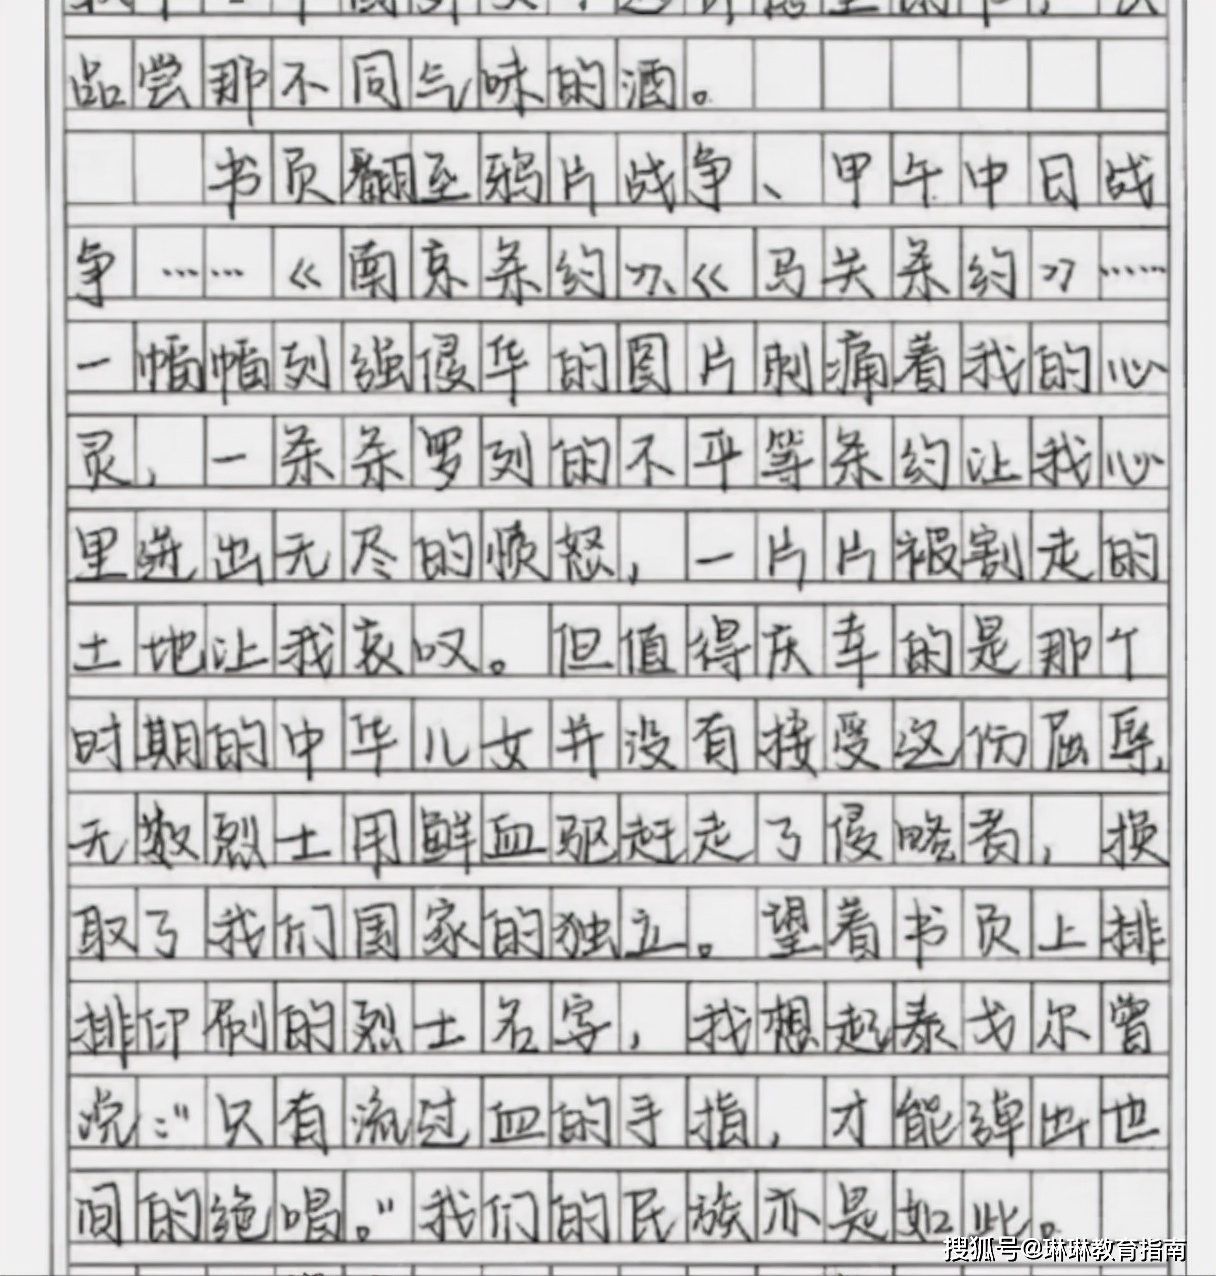 品尝那不同气味的酒。
书页翻至鸦片战争、甲午中日战
争……《南京条约》、《马关条约》……
一幅幅列强侵华的图片刺痛着我的心
灵，一条条罗列的不平等条约让我心
里迸出无尽的愤怒，一片片被割走的
土地让我哀叹。但值得庆幸的是那个
时期的中华儿女并没有接受这份屈辱，
无数烈士用鲜血驱赶走了侵略者，换
取了我们国家的独立。望着书页上排
排印刷的烈士名字，我想起泰戈尔曾
说：“只有流过血的手指，才能弹出世
间的绝唱。”我们的民族亦是如此。
搜狐号@琳琳教育指南